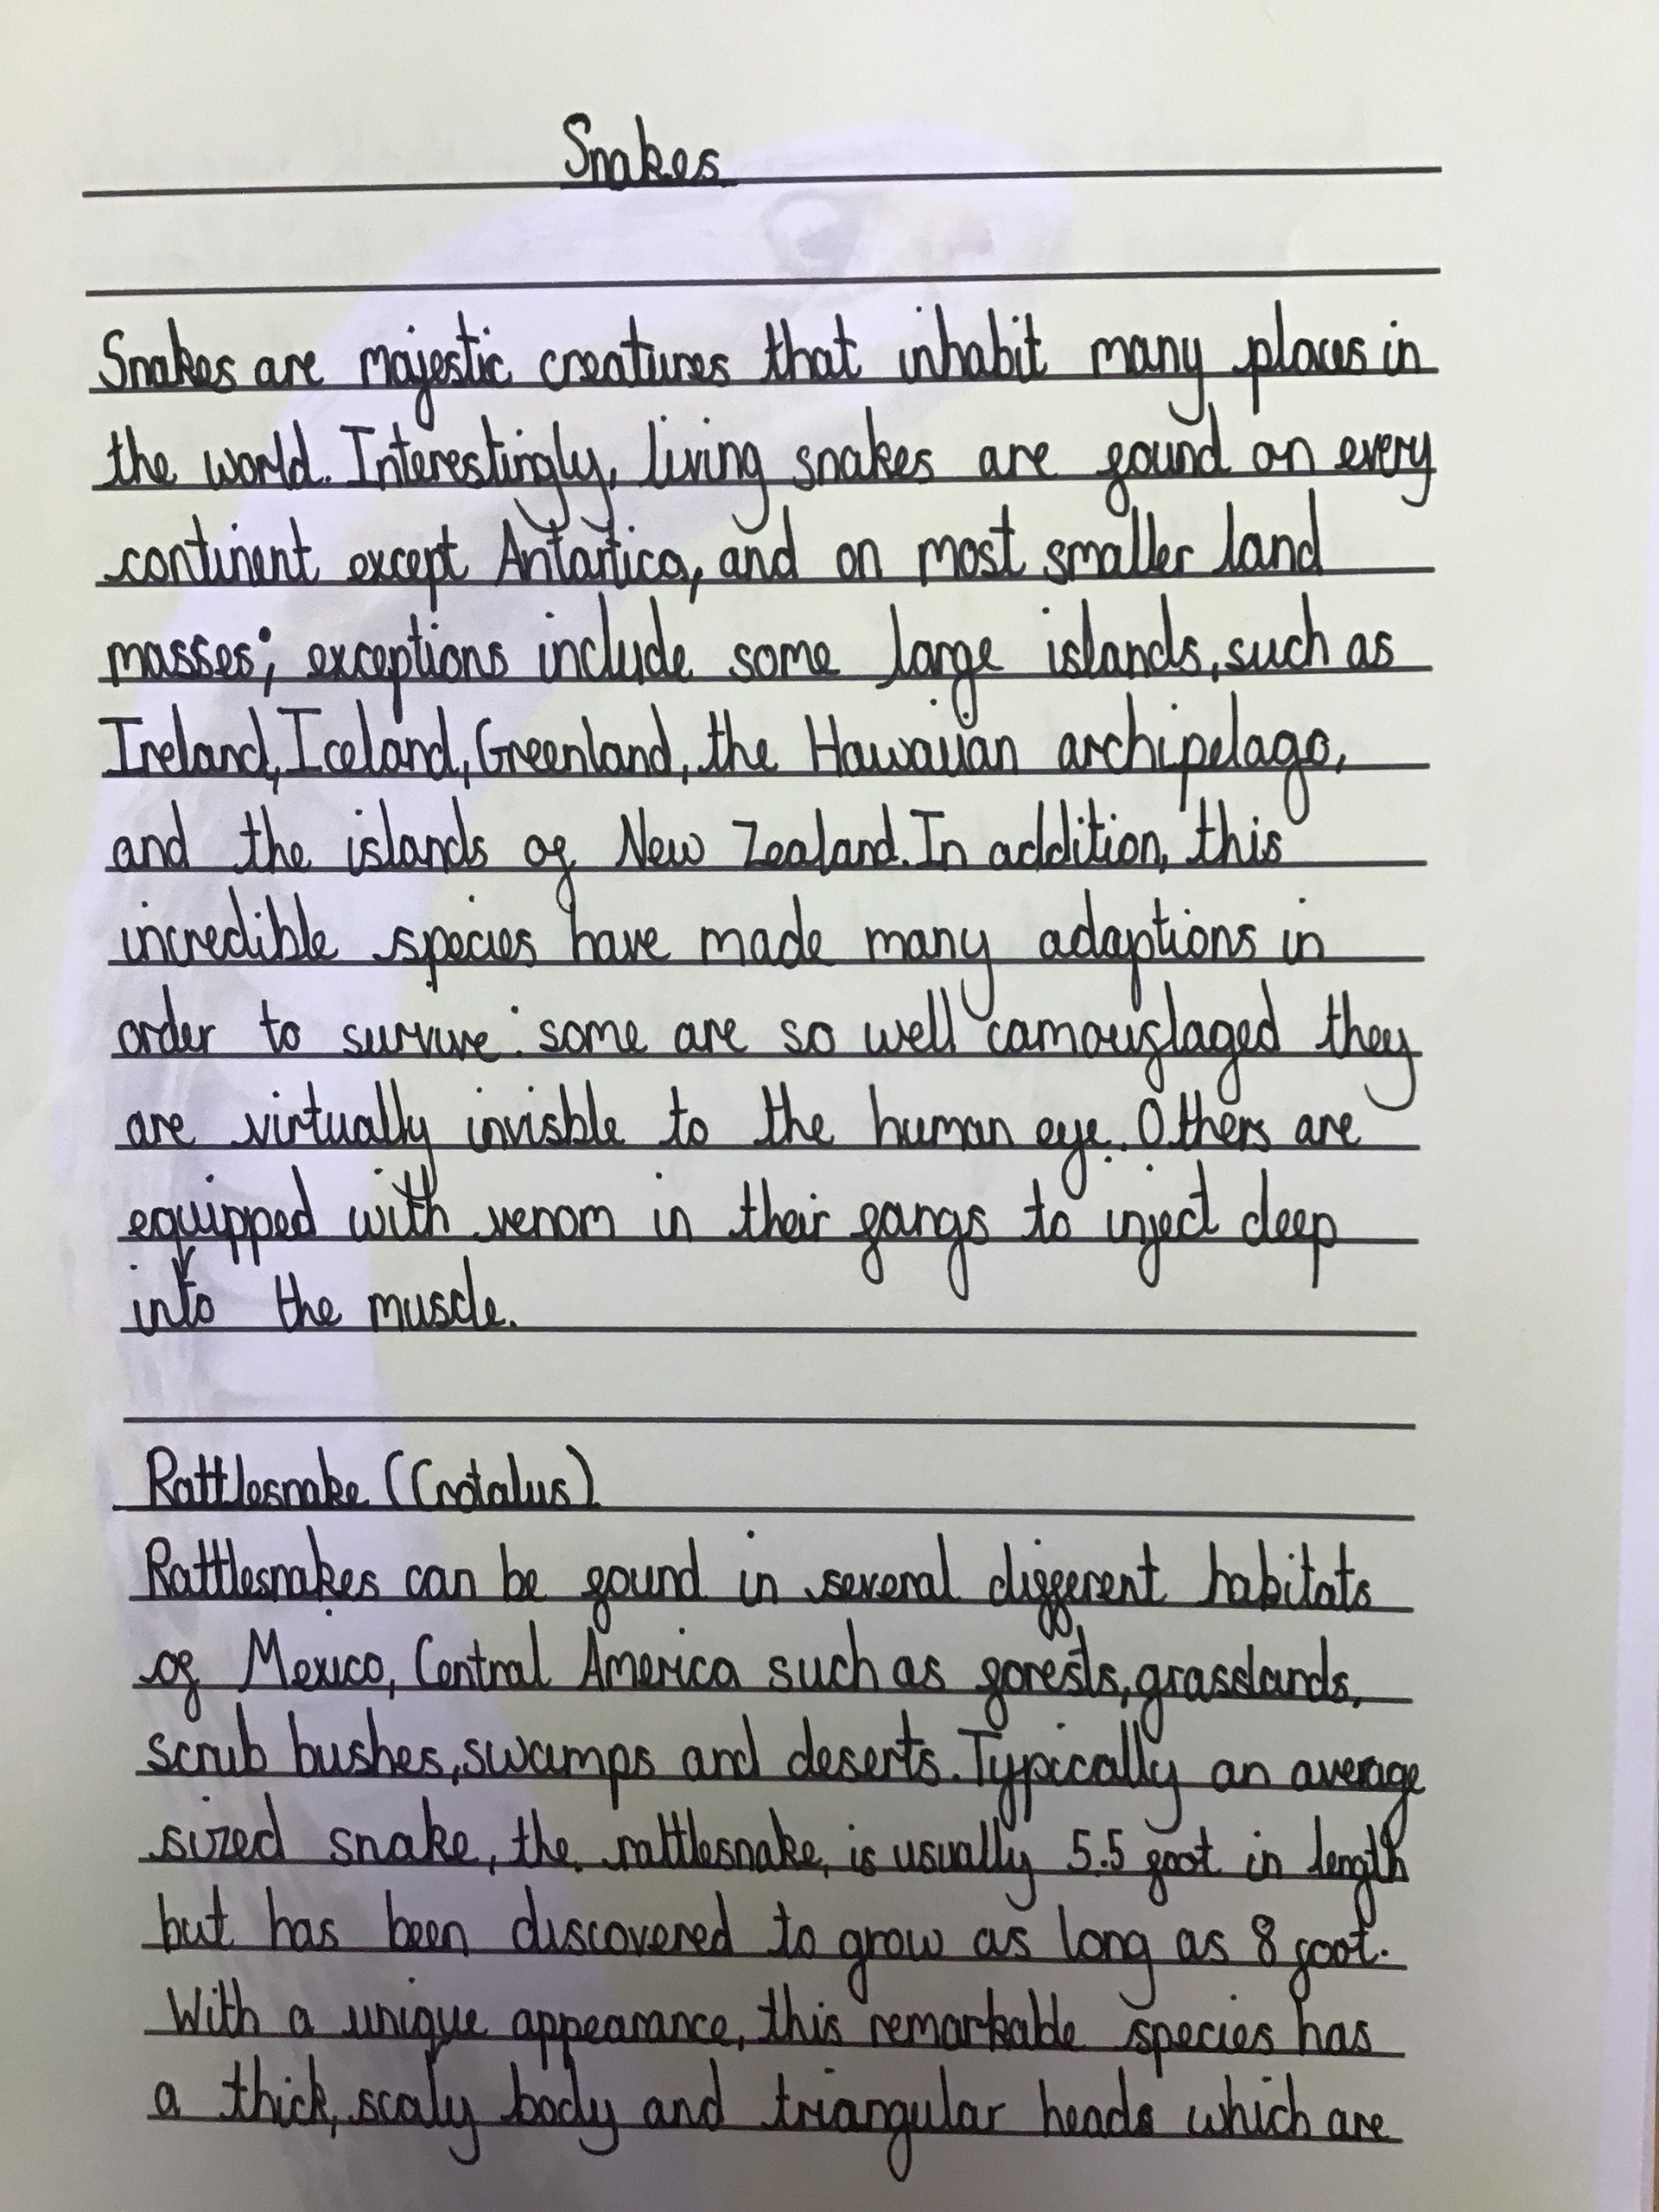 Snakes
Snakes are majestic creatures that inhabit many places in
the world. Interestingly, living snakes are found on every
continent except Antartica, and on most smaller land
masses; exceptions include some large islands, such as
Ireland, Iceland, Greenland, the Hawaiian archipelago,
and the islands of New Zealand. In addition, this
incredible species have made many adaptions in
order to survive: some are so well camouflaged they
are virtually invisble to the human eye. Others are
equipped with venom in their fangs to inject deep
into the muscle.
Rattlesnake (Crotalus)
Rattlesnakes can be found in several different habitats
of Mexico, Central America such as forests, grasslands,
scrub bushes, swamps and deserts. Typically an average
sized snake, the rattlesnake, is usually 5.5 foot in length
but has been discovered to grow as long as 8 foot.
With a unique appearance, this remarkable species has
a thick, scaly body and triangular heads which are